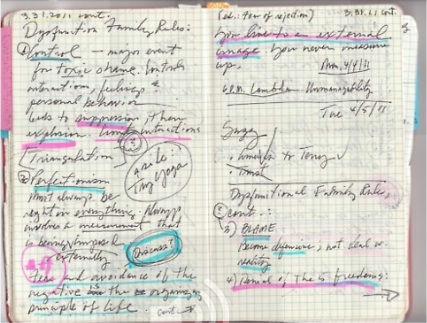 3.31.2011 cont.
Dysfunction Family Rules:
① Control – major event
for toxic shame. Controls
interactions, feelings, &
personal behavior
leads to suppression, then
explosion.
Triangulation
② Perfectionism
Must always be
right in everything. Always
involves a measurement that
is being imposed
externally
Discuss?
Fear and avoidance of the
negative is the organizing
principle of life. cont. →
fear of rejection)
3.31.11 cont.
You live to an external
image. You never measure
up.
Mon. 4/4/11
6 P.M. Lambda Unmanageability
Tue 4/5/11
• Trust
Dysfunctional Family Rules,
cont.:
3) BLAME
Become defensive, not deal w.
reality
4) Denial of the 5 freedoms: